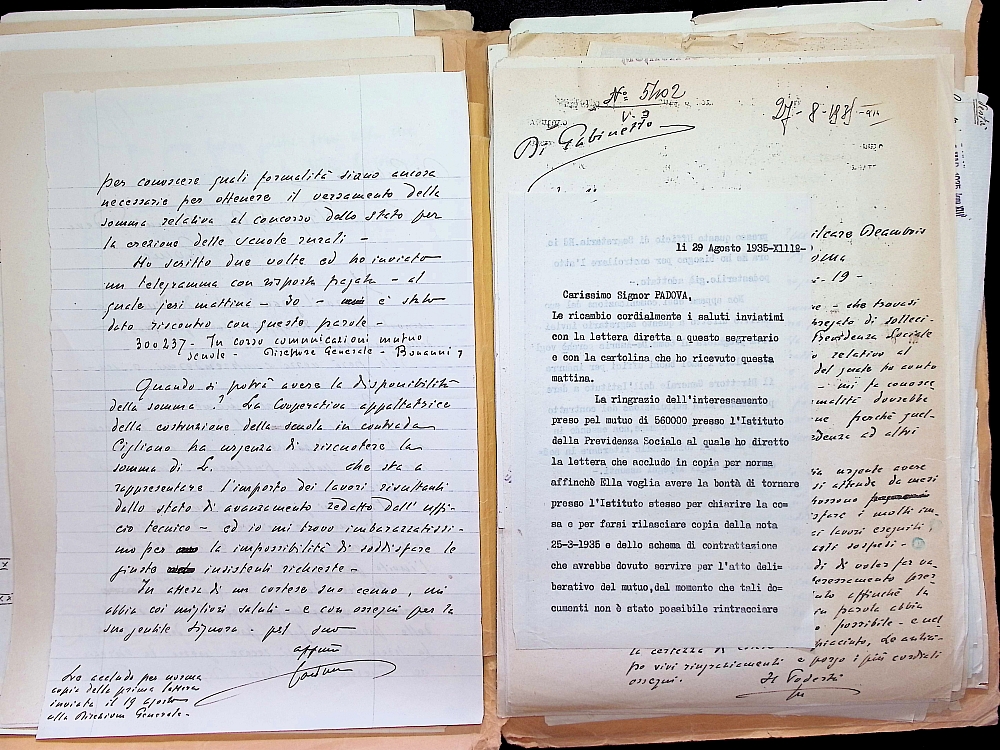 per conoscere quali formalità siano ancora
necessarie per ottenere il versamento della
somma relativa al concorso dello stato per
la erezione delle scuole rurali -
Ho scritto due volte ed ho inviato
un telegramma con risposta pagata - al
quale jeri mattina - 30 - è stato
dato riscontro con queste parole -
300237 - In corso comunicazioni mutuo
scuole - Direttore Generale - Bonanni,
Quando si potrà avere la disponibilità
della somma? La Cooperativa appaltatrice
della costruzione della scuola in contrada
Cigliano ha urgenza di riscuotere la
somma di L. che sta a
rappresentare l'importo dei lavori risultanti
dallo stato di avanzamento redatto dall'uffi-
cio tecnico - ed io mi trovo imbarazzatissi-
mo per la impossibilità di soddisfare le
giuste insistenti richieste -
In attesa di un cortese suo cenno, mi
abbia coi migliori saluti - e con ossequi per la
sua gentile Signora - pel suo
affmo
Le accludo per norma
copia della prima lettera
inviata il 19 agosto
alla Direzione Generale -
N° 5402
V. 3
27-8-1935
Di Gabinetto
li 29 Agosto 1935-XIIIº-
Carissimo Signor PADOVA,
Le ricambio cordialmente i saluti inviatimi
con la lettera diretta a questo segretario
e con la cartolina che ho ricevuto questa
mattina.
La ringrazio dell'interessamento
preso pel mutuo di 560000 presso l'Istituto
della Previdenza Sociale al quale ho diretto
la lettera che accludo in copia per norma
affinchè Ella voglia avere la bontà di tornare
presso l'Istituto stesso per chiarire la co=
sa e per farsi rilasciare copia della nota
25-3-1935 e dello schema di contrattazione
che avrebbe dovuto servire per l'atto deli=
berativo del mutuo,dal momento che tali do=
cumenti non è stato possibile rintracciare
- 19 -
- che trovasi
di solleci-
Sociale
relativo al
del quale ho avuto
- mi fa conosce
dovrebbe
perchè quel-
ad altri
urgente avere
si attende da mesi
i molti im-
lavori eseguiti
sospesi -
di di voler far va-
affinchè la
parola abbia
possibile - e nel
la certezza di
vivi ringraziamenti e porgo i più cordiali
ossequi.
Il Podestà